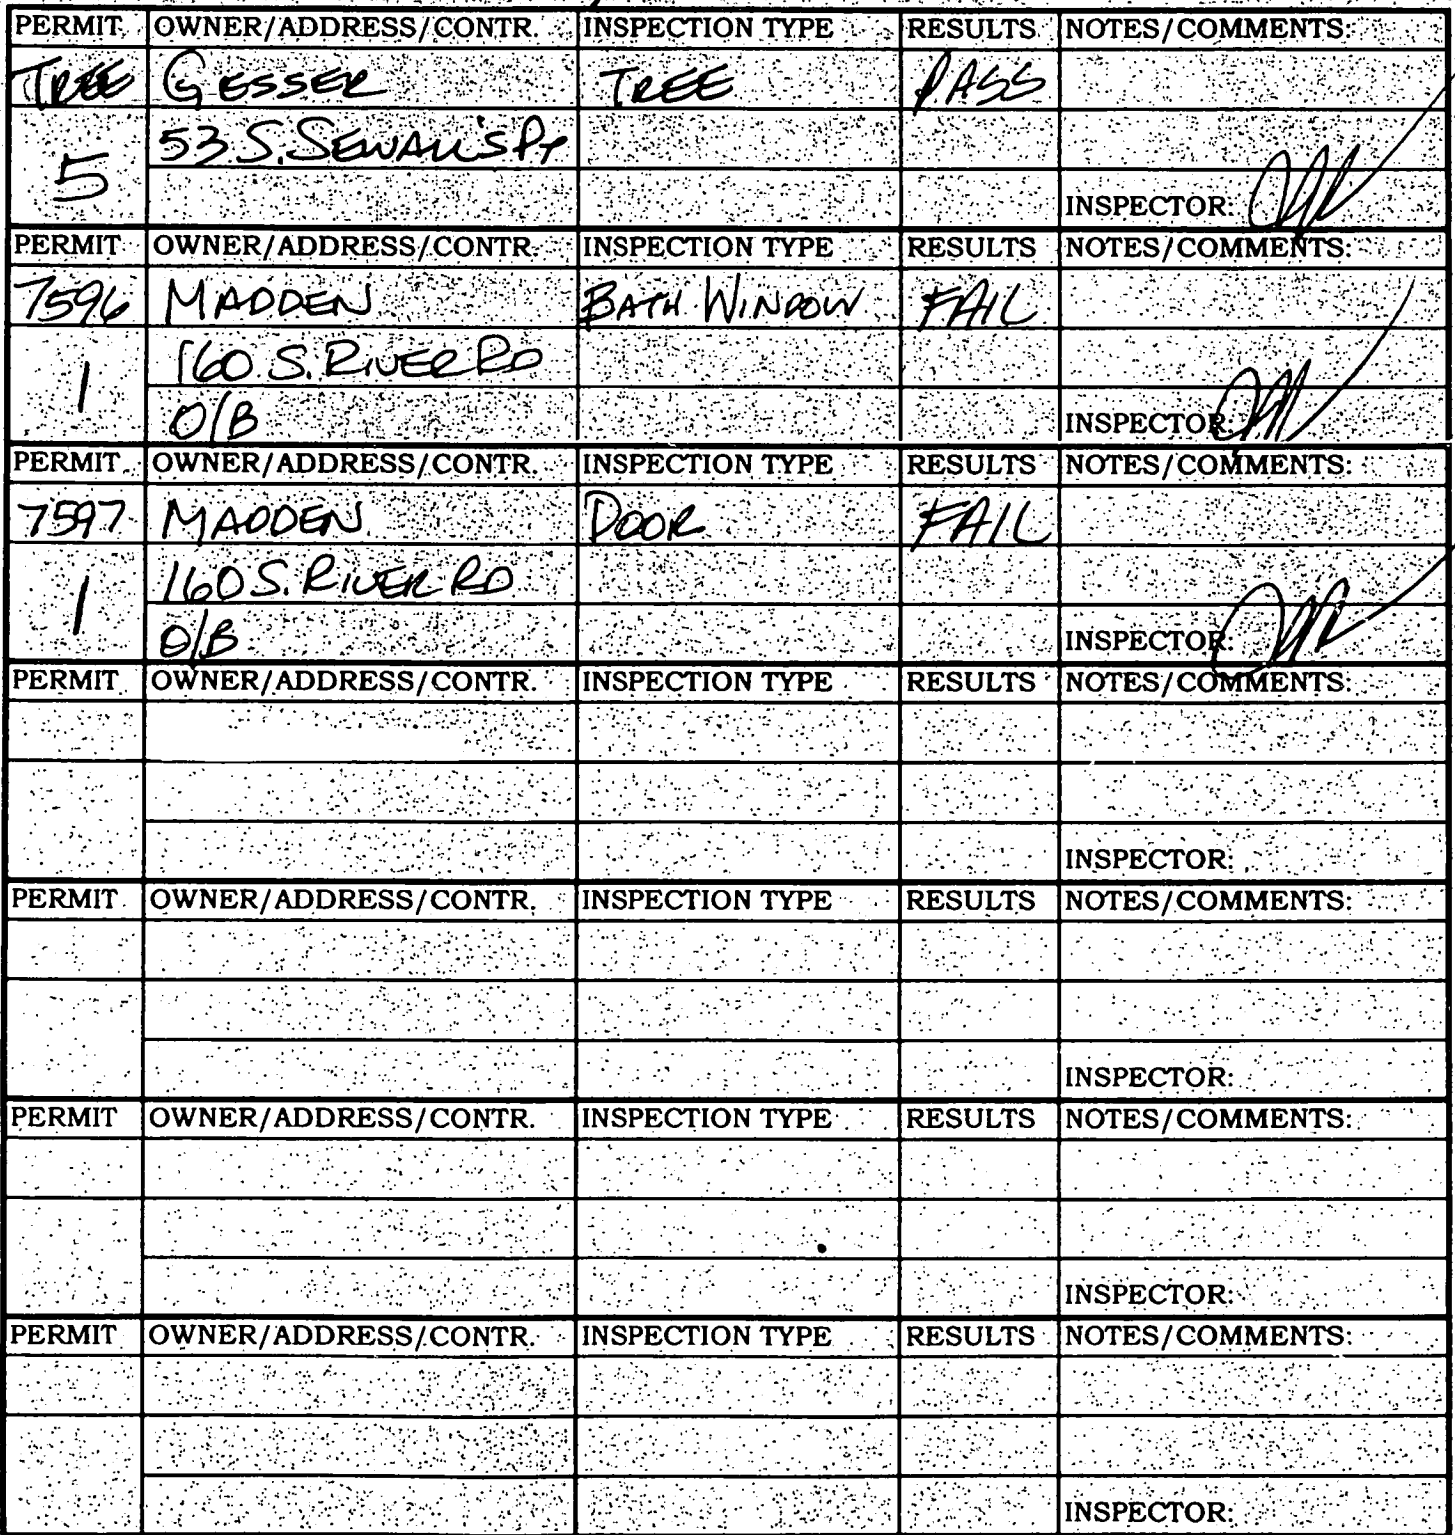 PERMIT OWNER/ADDRESS/CONTR. INSPECTION TYPE RESULTS NOTES/COMMENTS:
TREE GESSER TREE PASS
5 53 S. SEWALL'S PT
INSPECTOR:
PERMIT OWNER/ADDRESS/CONTR. INSPECTION TYPE RESULTS NOTES/COMMENTS:
7596 MADDEN BATH WINDOW FAIL
1 160 S. RIVER RD
O/B INSPECTOR:
PERMIT OWNER/ADDRESS/CONTR. INSPECTION TYPE RESULTS NOTES/COMMENTS:
7597 MADDEN DOOR FAIL
1 160 S. RIVER RD
O/B INSPECTOR:
PERMIT OWNER/ADDRESS/CONTR. INSPECTION TYPE RESULTS NOTES/COMMENTS:
INSPECTOR:
PERMIT OWNER/ADDRESS/CONTR. INSPECTION TYPE RESULTS NOTES/COMMENTS:
INSPECTOR:
PERMIT OWNER/ADDRESS/CONTR. INSPECTION TYPE RESULTS NOTES/COMMENTS:
INSPECTOR:
PERMIT OWNER/ADDRESS/CONTR. INSPECTION TYPE RESULTS NOTES/COMMENTS:
INSPECTOR: